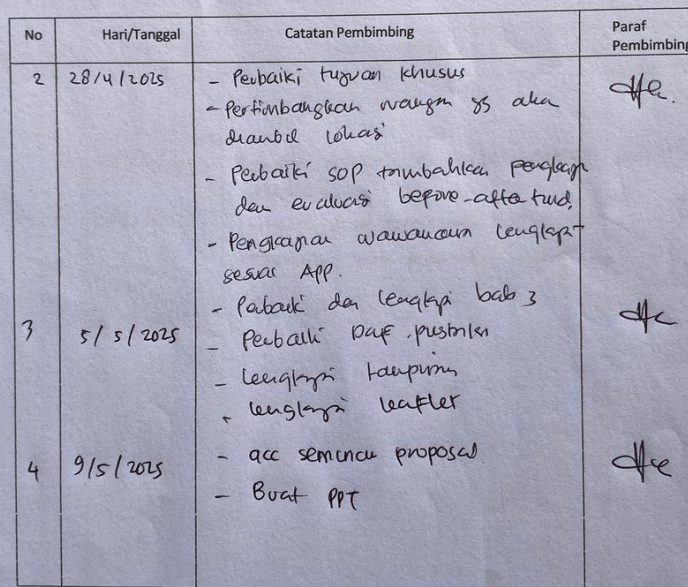 No Hari/Tanggal Catatan Pembimbing Paraf Pembimbing
2 28/4/2025 - Perbaiki tujuan khusus
- Pertimbangkan ruangan yg akan
diambil lokasi
- Perbaiki SOP tambahkan pengkajian
dan evaluasi before-after tind.
- Pengkajian wawancara lengkapi
sesuai APP.
- Perbaiki dan lengkapi bab 3
3 5/5/2025 - Perbaiki Daf. pustaka
- lengkapi lampiran
- lengkapi leaflet
4 9/5/2025 - acc seminar proposal
- Buat PPT